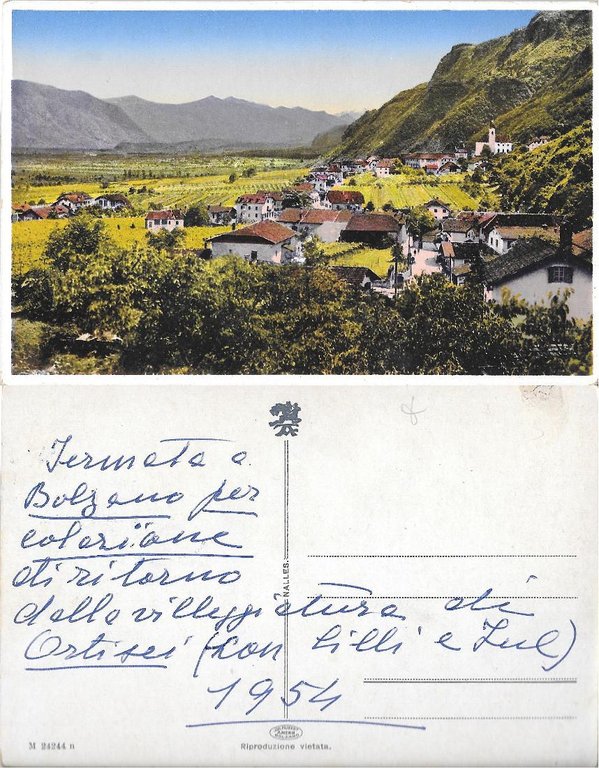 Fermata a
Bolzano per
colazione
di ritorno
dalla villeggiatura di
Ortisei (con Lilli e Jul)
1954
NALLES.
M 24244 n
Riproduzione vietata.